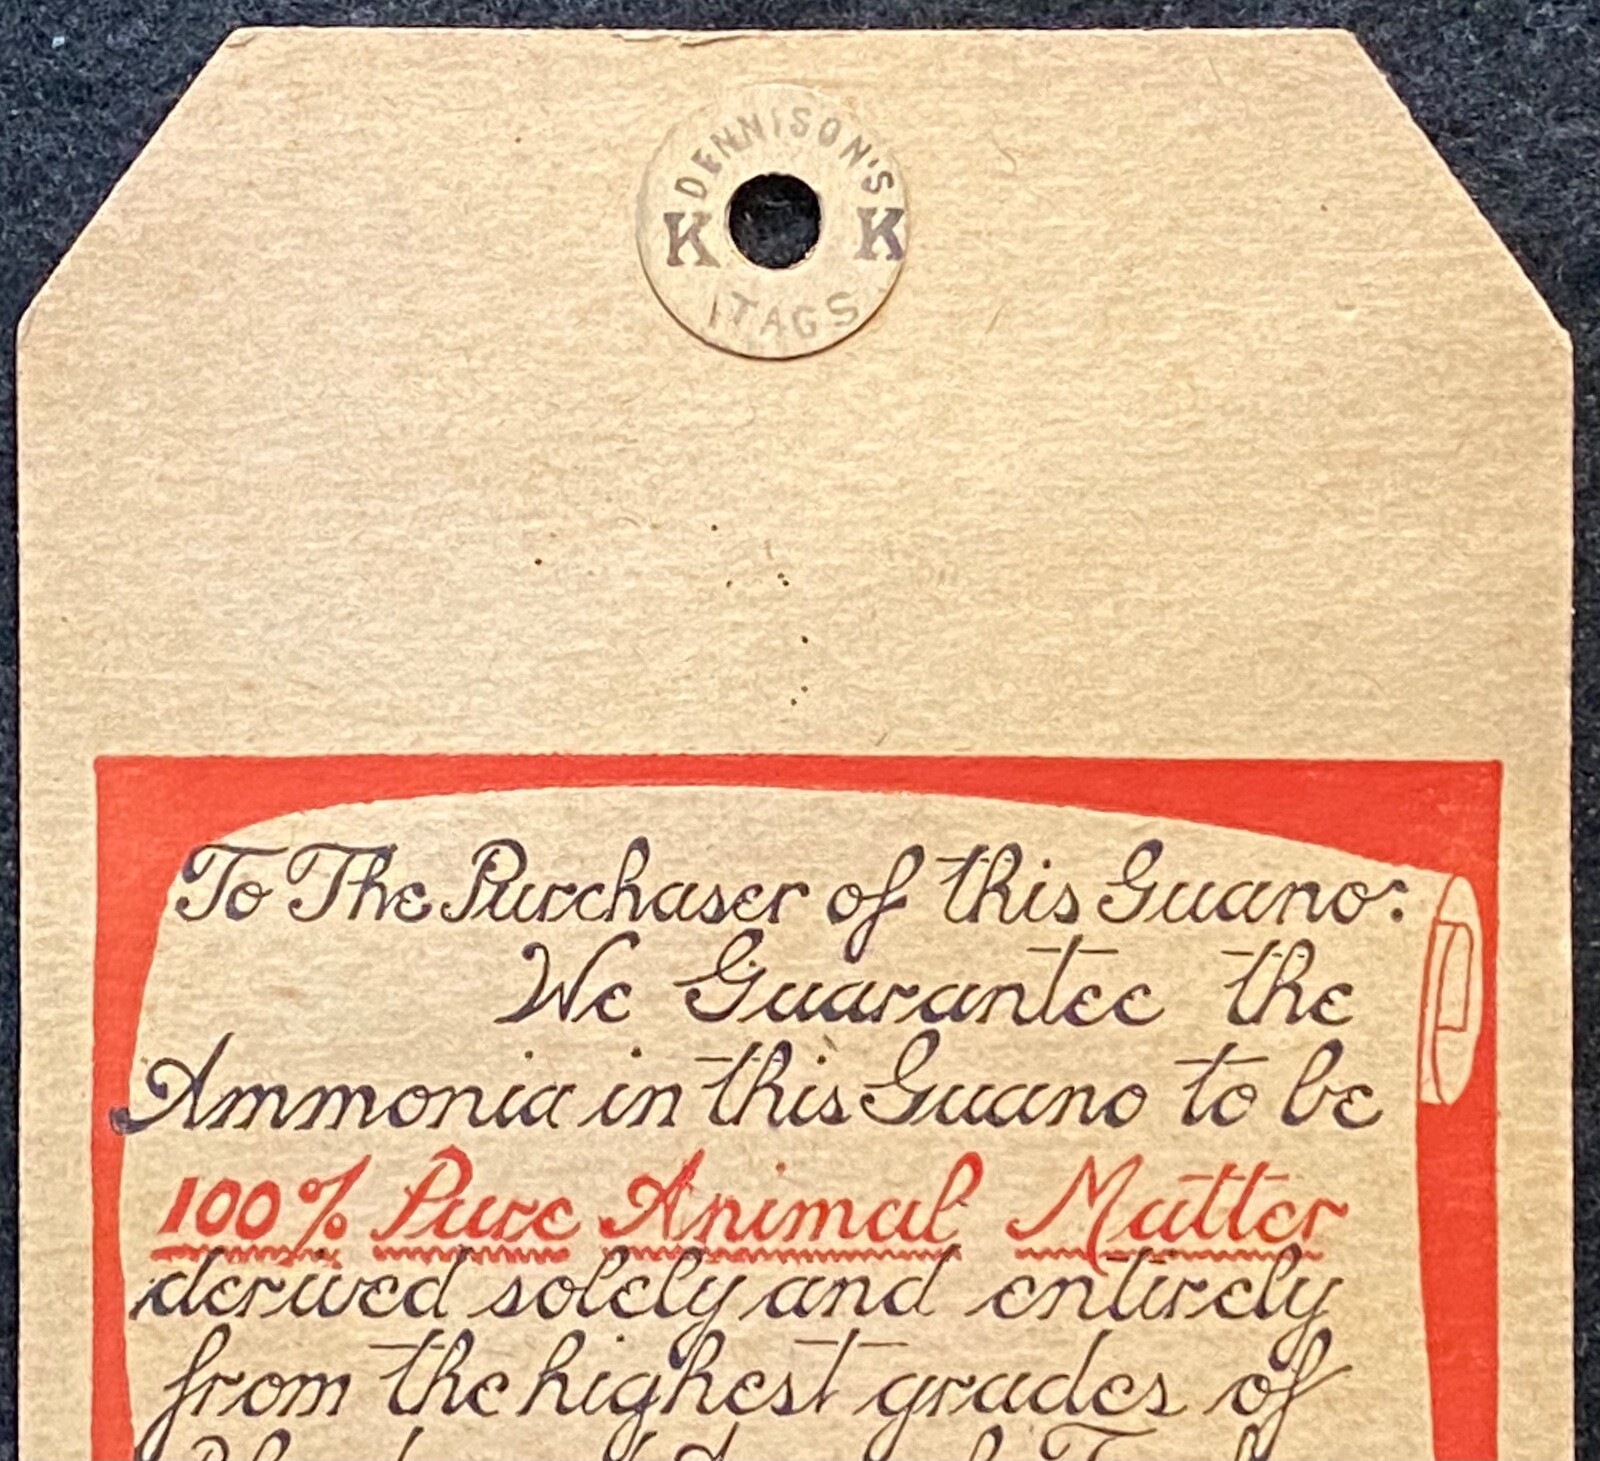 DENNISON'S
K K
TAGS
To The Purchaser of this Guano:
We Guarantee the
Ammonia in this Guano to be
100% Pure Animal Matter
derived solely and entirely
from the highest grades of